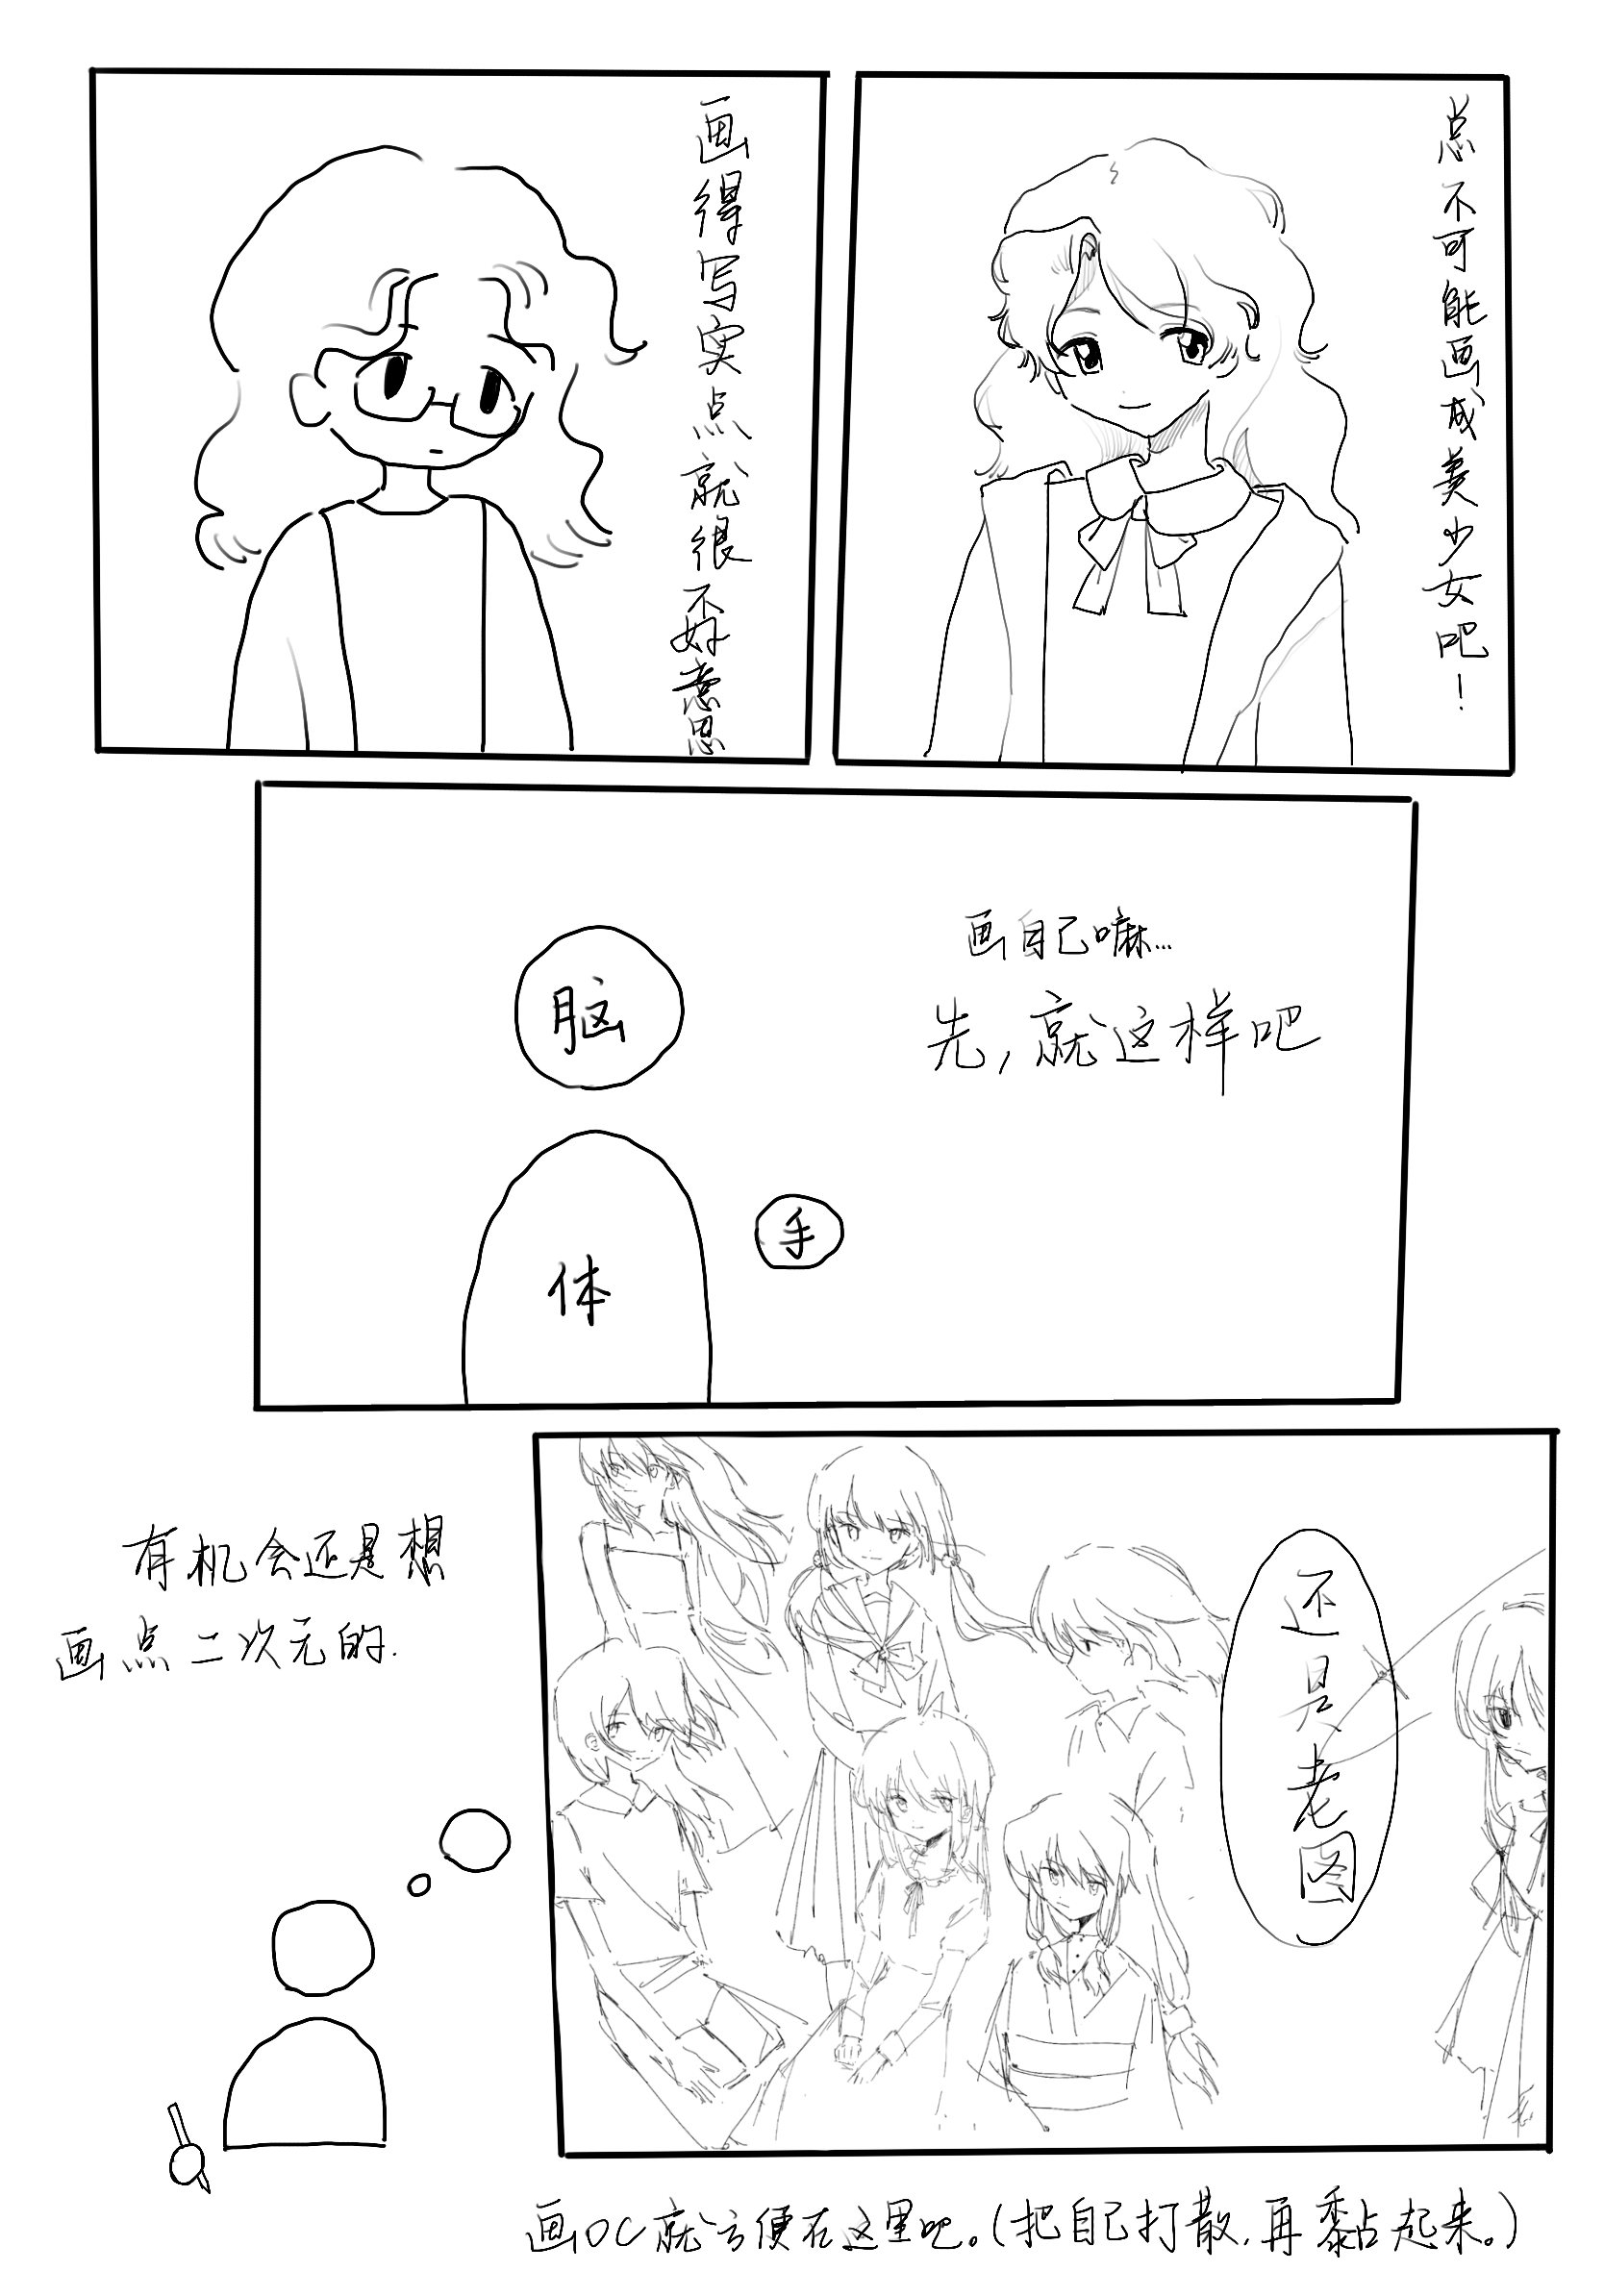 画得写实点就很不好意思
总不可能画成美少女吧！
画自己嘛…
先，就这样吧
脑
体
手
有机会还是想
画点二次元的.
还是老图
画OC就方便在这里吧。(把自己打散,再黏起来。)